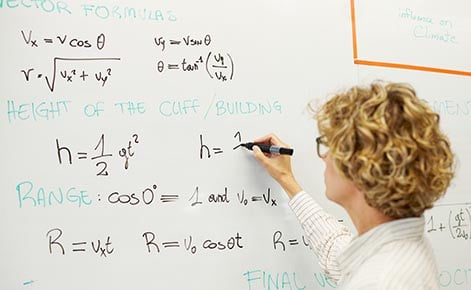 VECTOR FORMULAS
Vx = v cos θ    vy = v sin θ
v = √vx² + vy²    θ = tan⁻¹ (vy/vx)
influence on
Climate
HEIGHT OF THE CLIFF/BUILDING
h = 1/2 gt²    h = 1
RANGE: cos 0° = 1 and v₀ = vx
R = vxt    R = v₀ cosθt    R = v
FINAL